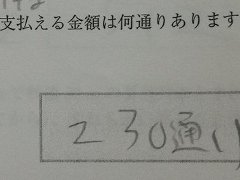 支払える金額は何通りあります
230通り